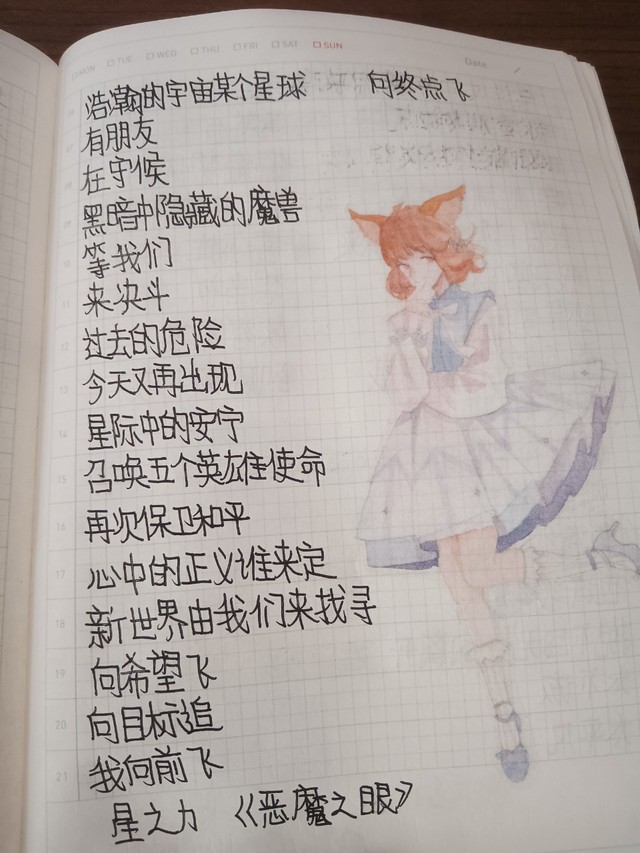 MON TUE WED THU FRI SAT SUN Date
浩瀚的宇宙某个星球 向终点飞
有朋友
在守候
黑暗中隐藏的魔兽
等我们
来决斗
过去的危险
今天又再出现
星际中的安宁
召唤五个英雄使命
再次保卫和平
心中的正义谁来定
新世界由我们来找寻
向希望飞
向目标追
我向前飞
星之力 《恶魔之眼》